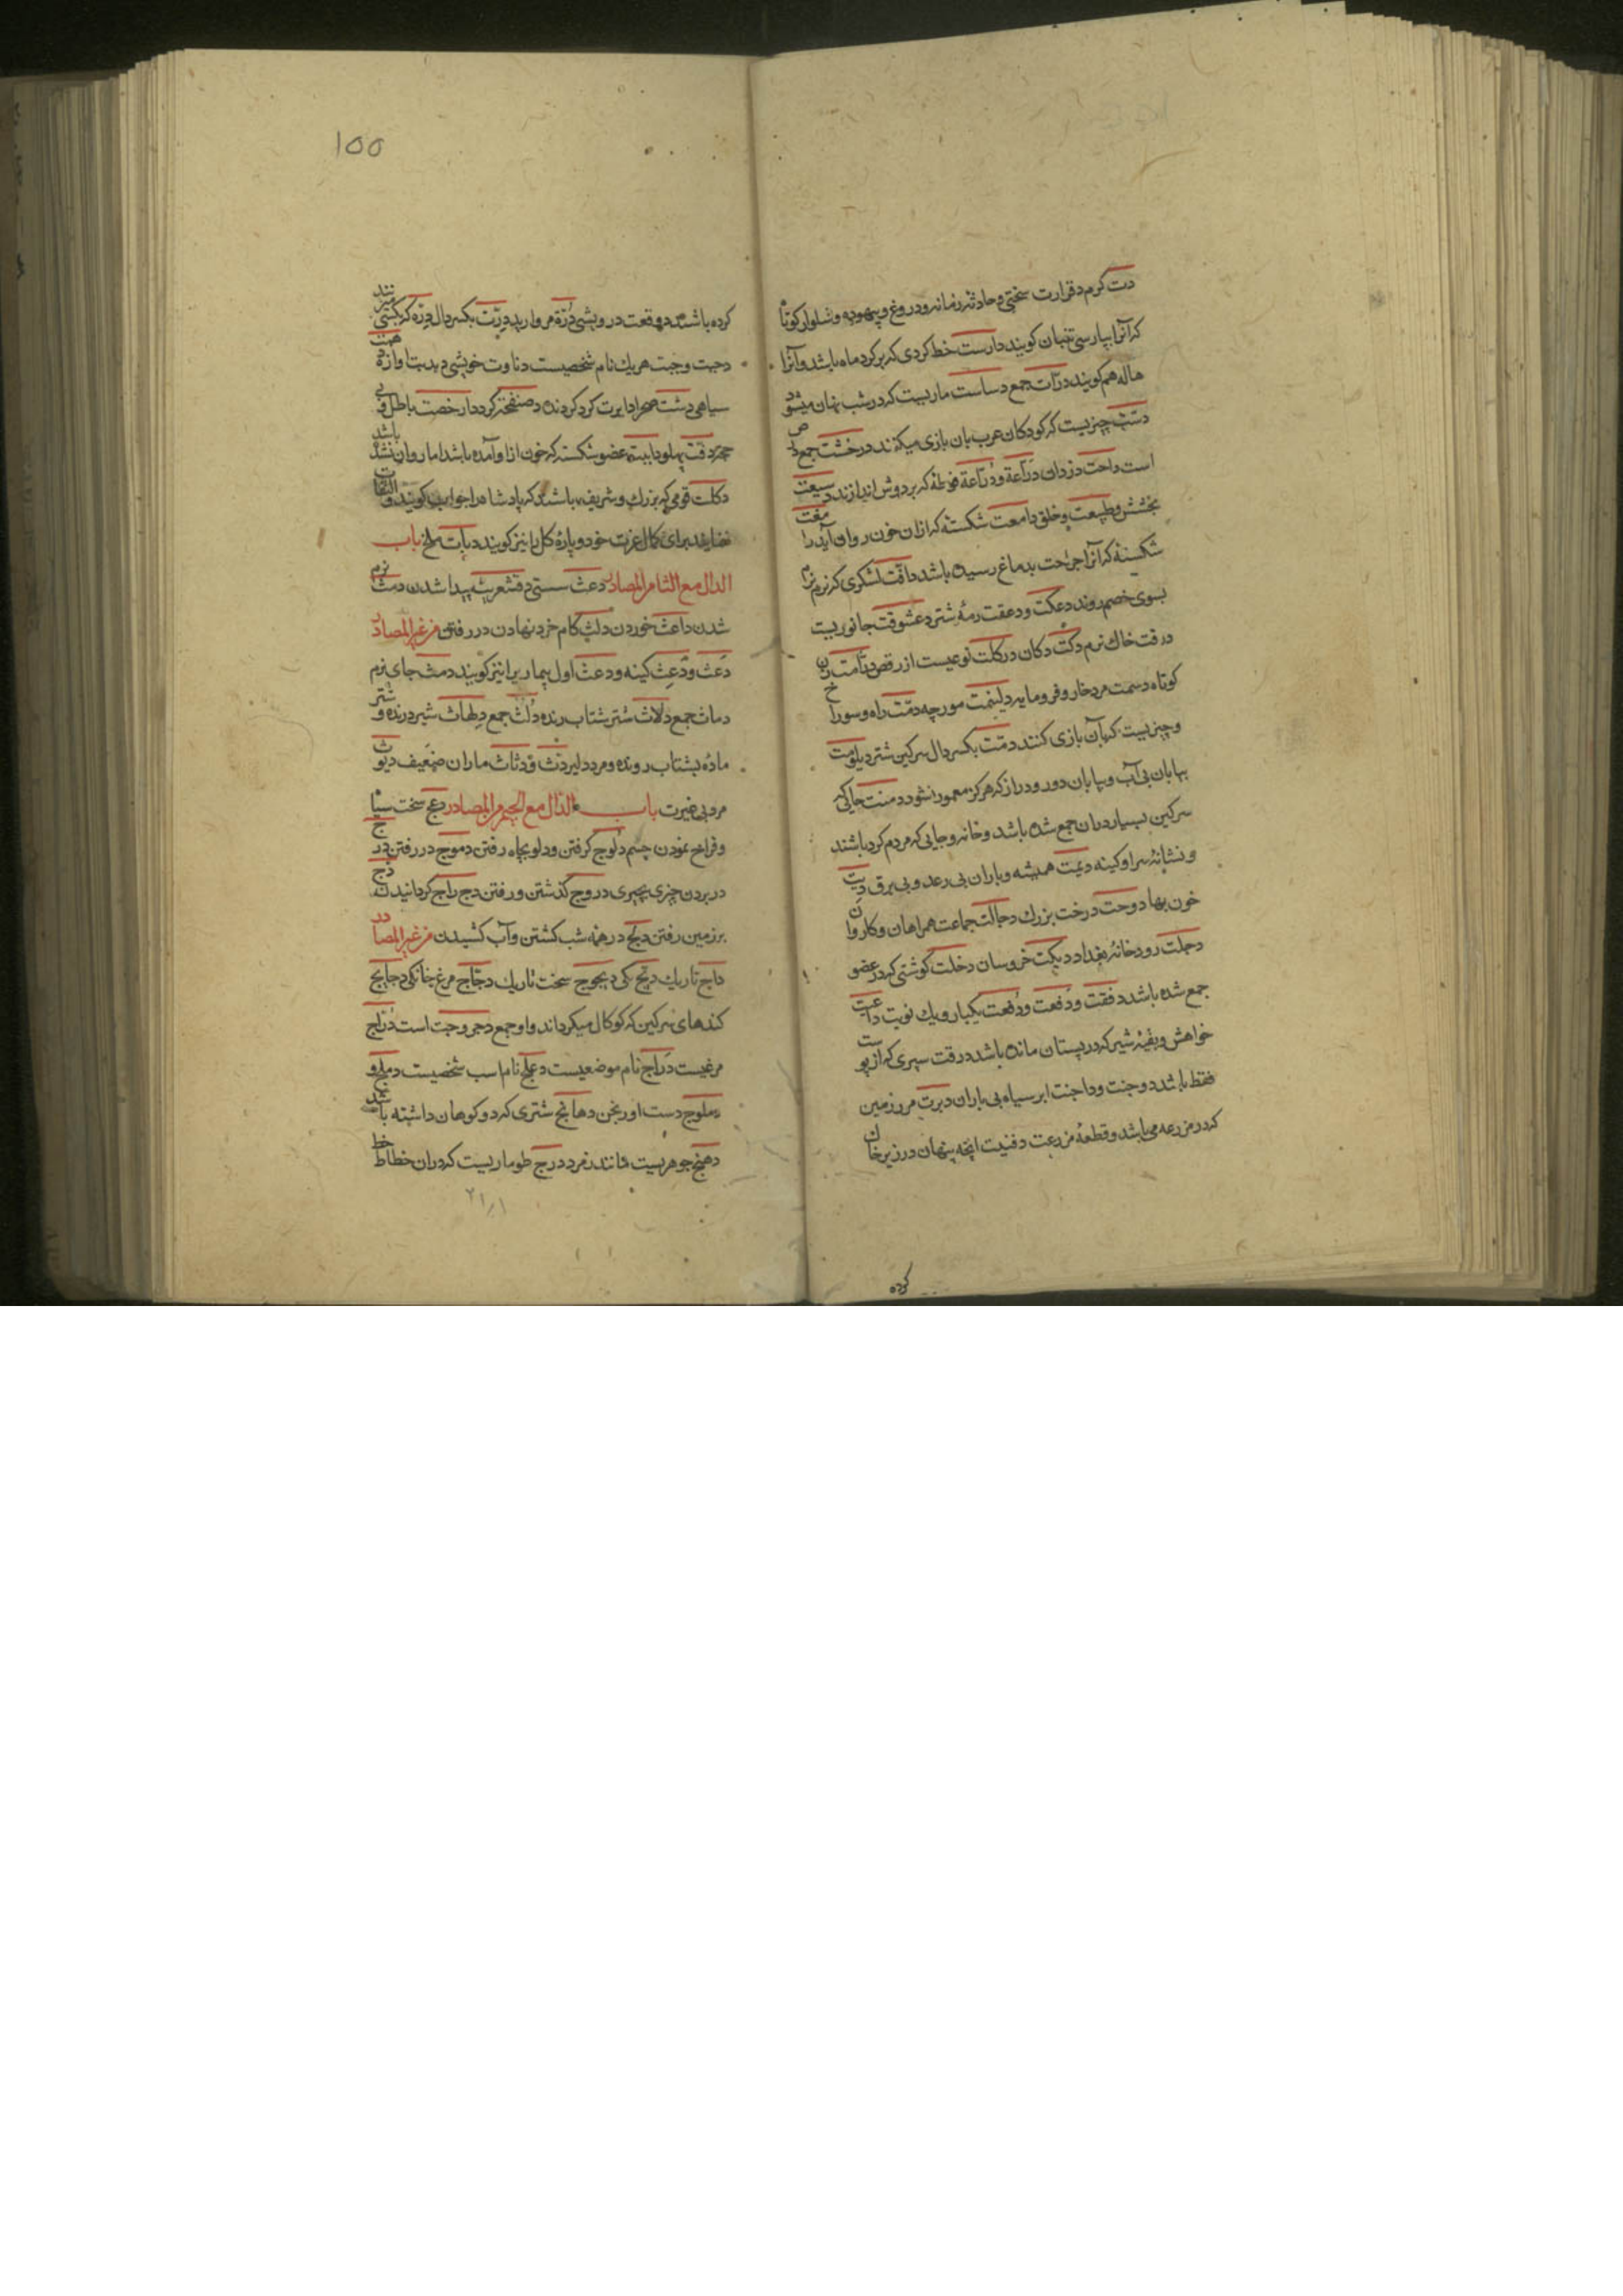 دت کرم دقرارت سختی و حادثه زمانه و دروغ و بیهوده و شلوار کوتاه
که آنرا بپارسی تنبان کویند دارست خط کردی که بر کرد ماه باشد و آنرا
هاله هم کویند درّات جمع دساست ماریست که در شب نهان میشود
دستب چیزیست که کودکان عرب بان بازی میکنند درخشت جمع
است داحت دزدان دَرّاعة ودُرّاعة فوطهٔ که بر دوش اندازند دسیعت
بخشش و طبیعت و خلق دامعت شکستهٔ که ازان خون روان آید دامغت
شکستهٔ که آنرا جراحت بدماغ رسیده باشد داقت لشکری که نرم نرم
بسوی خصم روند دعکت ودعقت رمهٔ شتر دعشوقت جانوریست
درقت خاک نرم دکّت دکان درکلت نوعیست از رقص دمّامت زن
کوتاه دسمت مرد خار و فرومایه دلینمت مورچه دمّت راه و سوراخ
و چیزیست که بآن بازی کنند دمّت بکسر دال سرکین شتر دیلومت
بیابان بی آب و بیابان دور و دراز که هرکز معمور نشود دمنت جایی که
سرکین بسیار دران جمع شده باشد و خانه و جایی که مردم کرد باشند
و نشانهٔ سرا و کینه دیمت همیشه و باران بی رعد و بی برق دیت
خون بها دوحت درخت بزرك دجالت جماعت همراهان و کاروان
دجلت رودخانهٔ بغداد دیکت خروسان دخلت کوشتی که در عضو
جمع شده باشد دفقت ودَفعت ودُفعت یکبار و یك نوبت داعیت
خواهش و بقیهٔ شیر که در پستان مانده باشد درقت سپری که از پوست
فقط باشد دوجنت و داجنت ابر سیاه بی باران دبرت مرز زمین
که در مزرعه می باشد و قطعهٔ مزرعت دفنیت انچه پنهان در زیر خاک
کرده
۱۵۵
کرده باشند دوقعت درویشی دُرّة مروارید دِرّت بکسر دال دِرّه که بکسی میزنند
دحیت و جبت هریك نام شخصیست دناوت خویشی دبدبت اوازه
سیاهی دشت صحرا دایرت کرد کردنده دصنفحة کرد دارخصت باطل و بی
حجت دفت پهلو دابیته عضو شکسته که خون از او آمده باشد اما روان نشده باشد
دکلت قومی که بزرك و شریف باشند که پادشاه را جواب کویند و التفات
ننمایند برای کمال عزت خود و پارهٔ کل را نیز کویند دبات ملخ باب
الدال مع الثا من المصادر دعث سستی دقشعریثه پیدا شدن دمث نرم
شدن داعث خوردن دلث کام خرد نهادن در رفتن من غیر المصادر
دَعث ودَعِث کینه و دعث اول بیماریرا نیز کویند دمث جای نرم
دماث جمع دلاث شتر شتاب رنده دُلث جمع دِلهاث شیر درنده و شتر
مادهٔ بشتاب رونده و مرد دلیر دنث ودثاث ماران ضعیف دیوث
مرد بی غیرت باب الدال مع الجیم من المصادر دعج سخت سیاه
و فراخ نمودن چشم دلوج کرفتن ودلو بچاه رفتن دموج در رفتن درج
در بردن چیزی بچیزی دروج کذشتن و رفتن دج راج کردانیدن دج
بر زمین رفتن دلج در همه شب کشتن و آب کشیدن من غیر المصادر
داج تاریك دیج یکی دیجوج سخت تاریك دجّاج مرغ خانکی دجایج
کندهای سرکین که کوکال میکرداند و او جمع دحروجت است دُرّاج
مرغیست دَرّاج نام موضعیست دعلج نام اسب شخصیست دملج و
دملوج دست اورنجن دهانج شتری که دو کوهان داشته باشد
دهنج جوهریست مانند زمرد درج طوماریست که دران خط خطاط
۲۱/۱